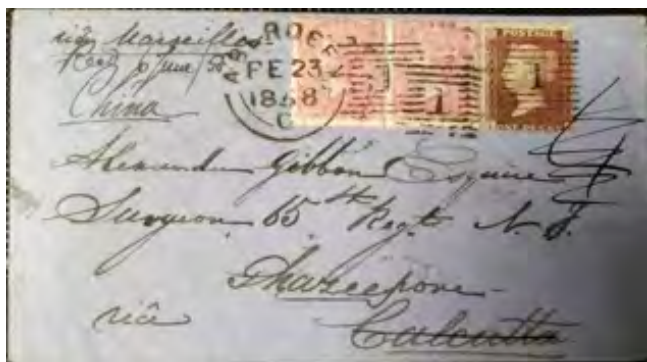 via Marseilles
China
ABERDEEN
FE 23
1858
C
1
1
POSTAGE
ONE PENNY
Alexander Gibbon Esquire
Surgeon 65th Regt N. I.
Ghazeepore
via Calcutta